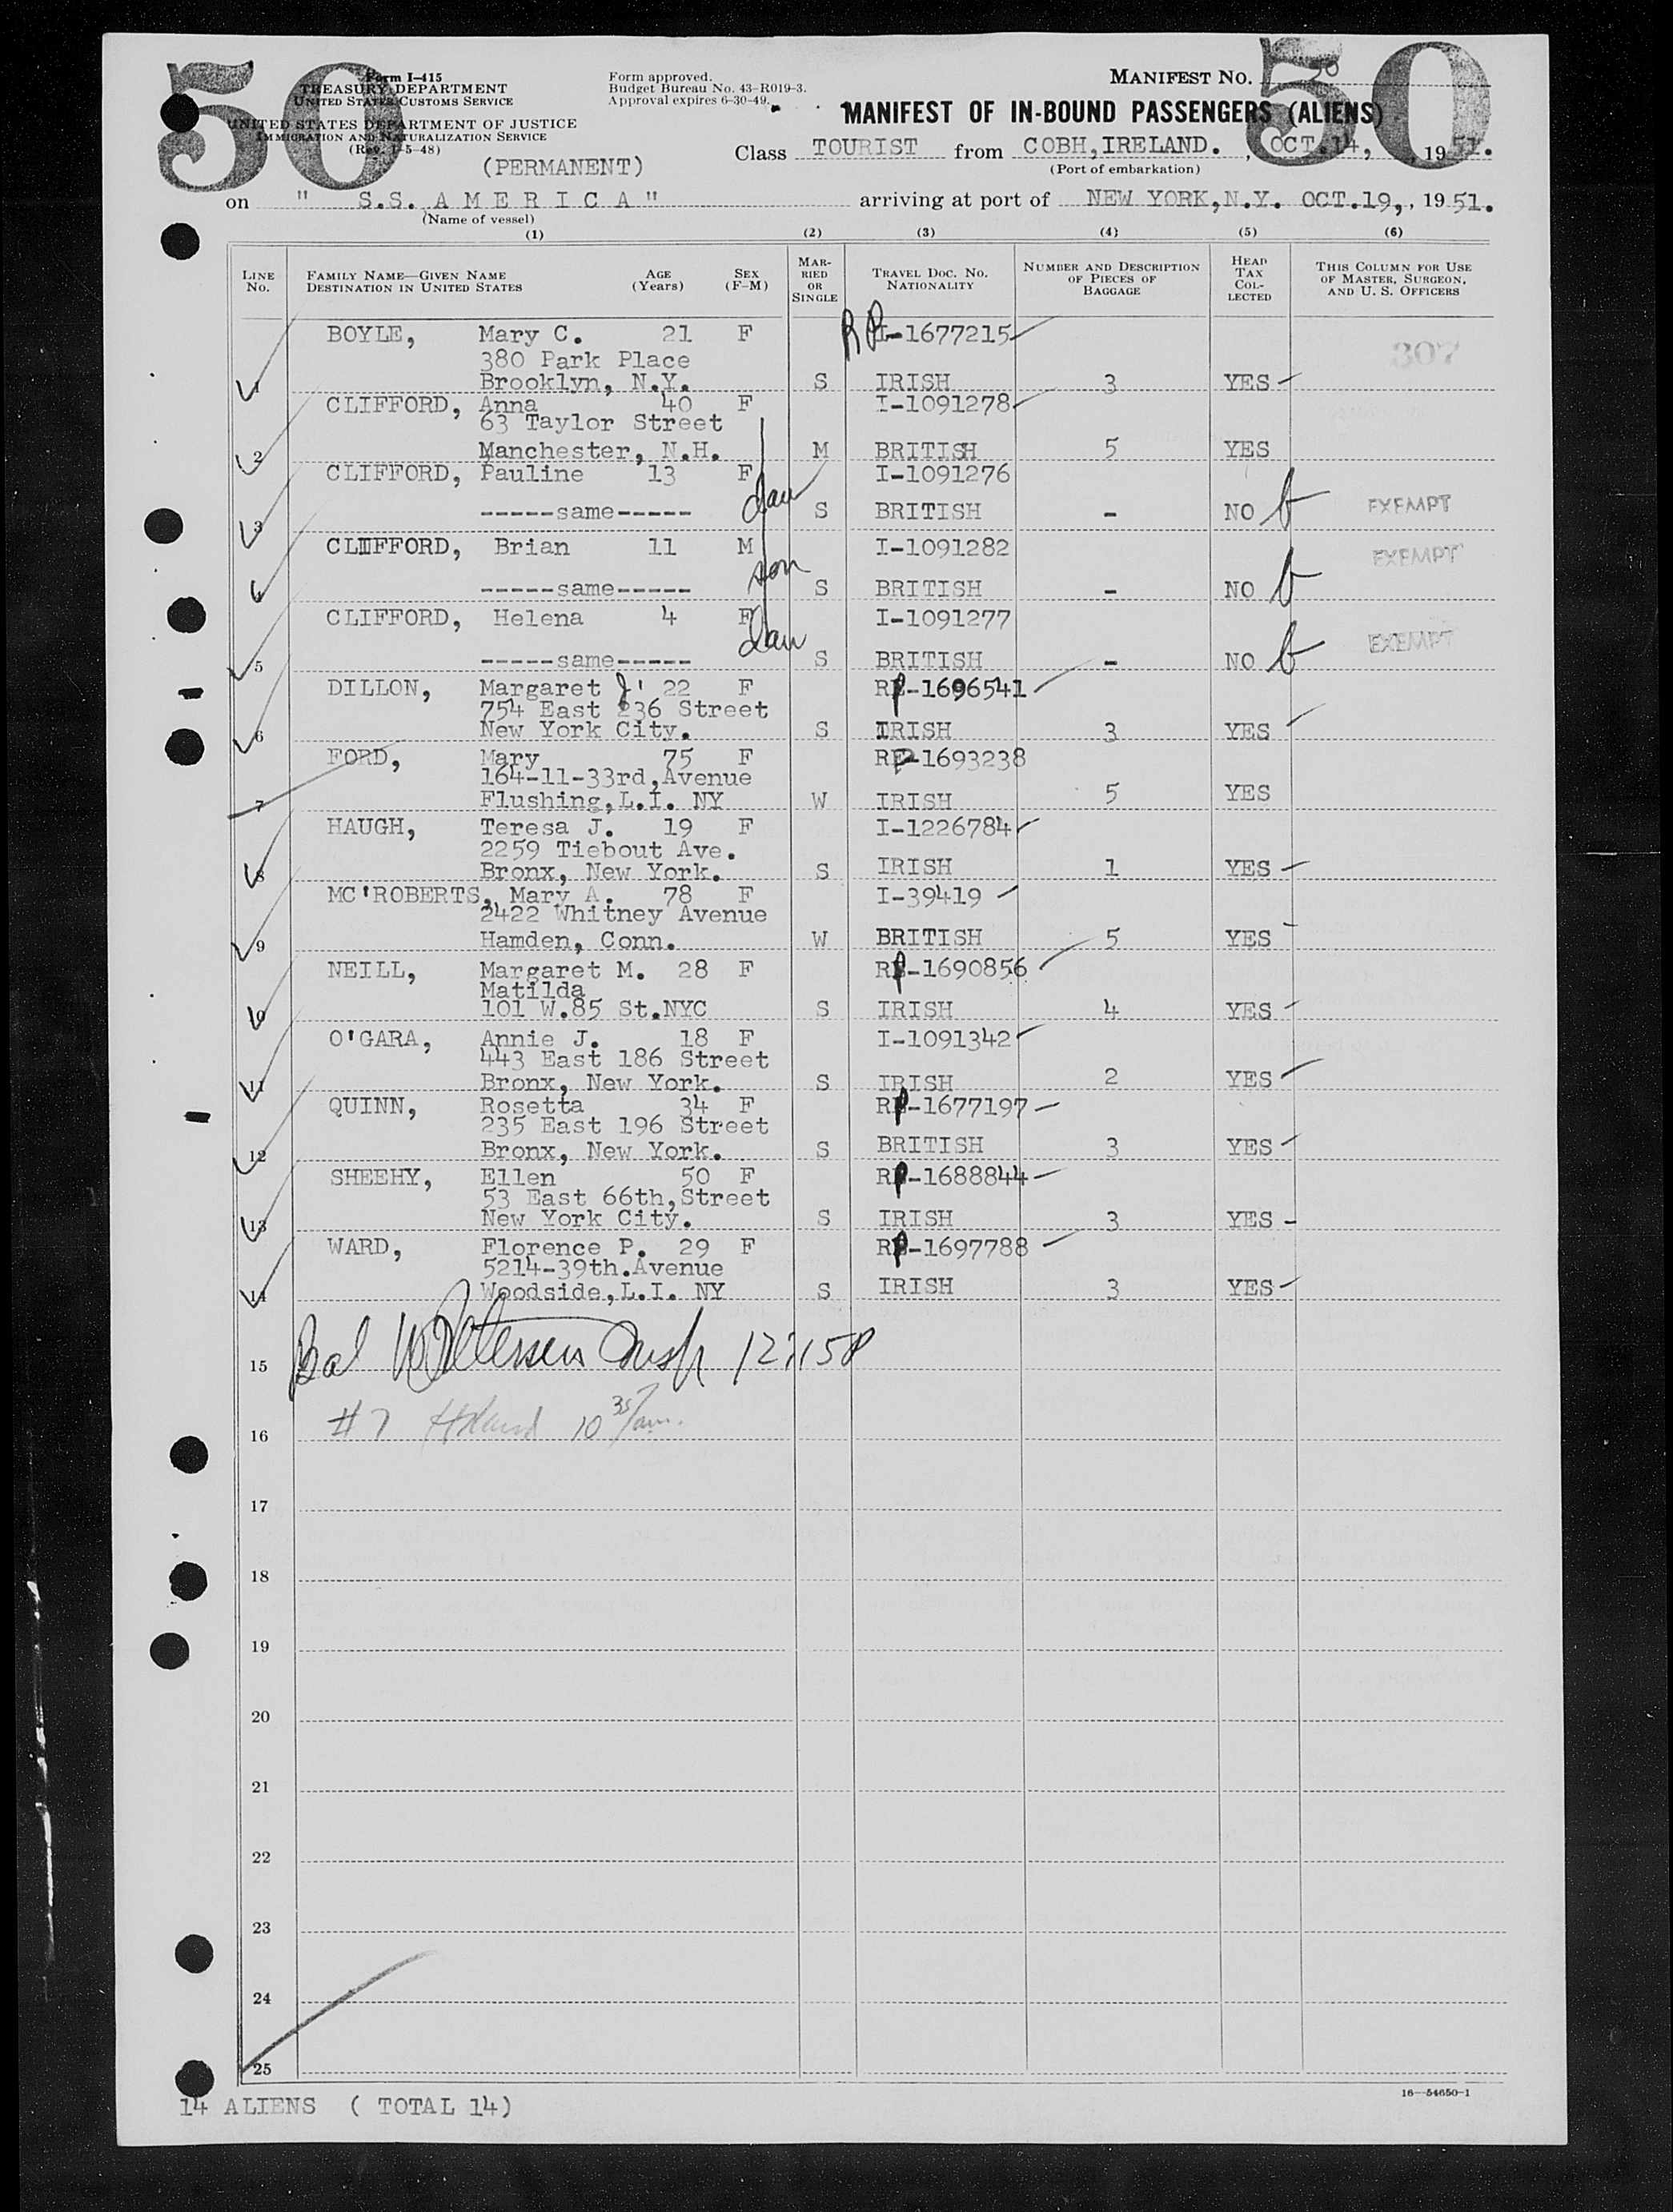 50
50
Form I-415
TREASURY DEPARTMENT
UNITED STATES CUSTOMS SERVICE
UNITED STATES DEPARTMENT OF JUSTICE
IMMIGRATION AND NATURALIZATION SERVICE
(Rev. 1-5-48)
Form approved.
Budget Bureau No. 43-R019-3.
Approval expires 6-30-49.
MANIFEST NO. 50
MANIFEST OF IN-BOUND PASSENGERS (ALIENS)
(PERMANENT)
Class TOURIST from COBH, IRELAND. , OCT.14, , 1951.
(Port of embarkation)
on " S.S. A M E R I C A " arriving at port of NEW YORK, N.Y. OCT.19, , 1951.
(Name of vessel)
(1) (2) (3) (4) (5) (6)
LINE No. FAMILY NAME—GIVEN NAME DESTINATION IN UNITED STATES AGE (Years) SEX (F-M) MARRIED OR SINGLE TRAVEL DOC. NO. NATIONALITY NUMBER AND DESCRIPTION OF PIECES OF BAGGAGE HEAD TAX COLLECTED THIS COLUMN FOR USE OF MASTER, SURGEON, AND U. S. OFFICERS
BOYLE, Mary C. 21 F RP I-1677215
380 Park Place 307
1 Brooklyn, N.Y. S IRISH 3 YES
CLIFFORD, Anna 40 F I-1091278
63 Taylor Street
2 Manchester, N.H. M BRITISH 5 YES
CLIFFORD, Pauline 13 F I-1091276
3 -----same----- dau S BRITISH - NO EXEMPT
CLIFFORD, Brian 11 M I-1091282 EXEMPT
-----same----- son S BRITISH - NO
CLIFFORD, Helena 4 F I-1091277
5 -----same----- dau S BRITISH - NO EXEMPT
DILLON, Margaret J. 22 F RP-1696541
754 East 236 Street
6 New York City. S IRISH 3 YES
FORD, Mary 75 F RP-1693238
164-11-33rd, Avenue
7 Flushing, L.I. NY W IRISH 5 YES
HAUGH, Teresa J. 19 F I-1226784
2259 Tiebout Ave.
8 Bronx, New York. S IRISH 1 YES
MC'ROBERTS, Mary A. 78 F I-39419
2422 Whitney Avenue
9 Hamden, Conn. W BRITISH 5 YES
NEILL, Margaret M. 28 F RP-1690856
Matilda
10 101 W.85 St.NYC S IRISH 4 YES
O'GARA, Annie J. 18 F I-1091342
443 East 186 Street
11 Bronx, New York. S IRISH 2 YES
QUINN, Rosetta 34 F RP-1677197
235 East 196 Street
12 Bronx, New York. S BRITISH 3 YES
SHEEHY, Ellen 50 F RP-1688844
53 East 66th, Street
13 New York City. S IRISH 3 YES -
WARD, Florence P. 29 F RP-1697788
5214-39th.Avenue
14 Woodside, L.I. NY S IRISH 3 YES
15
16 #7 10 35/am.
17
18
19
20
21
22
23
24
25
16—54650-1
14 ALIENS ( TOTAL 14)